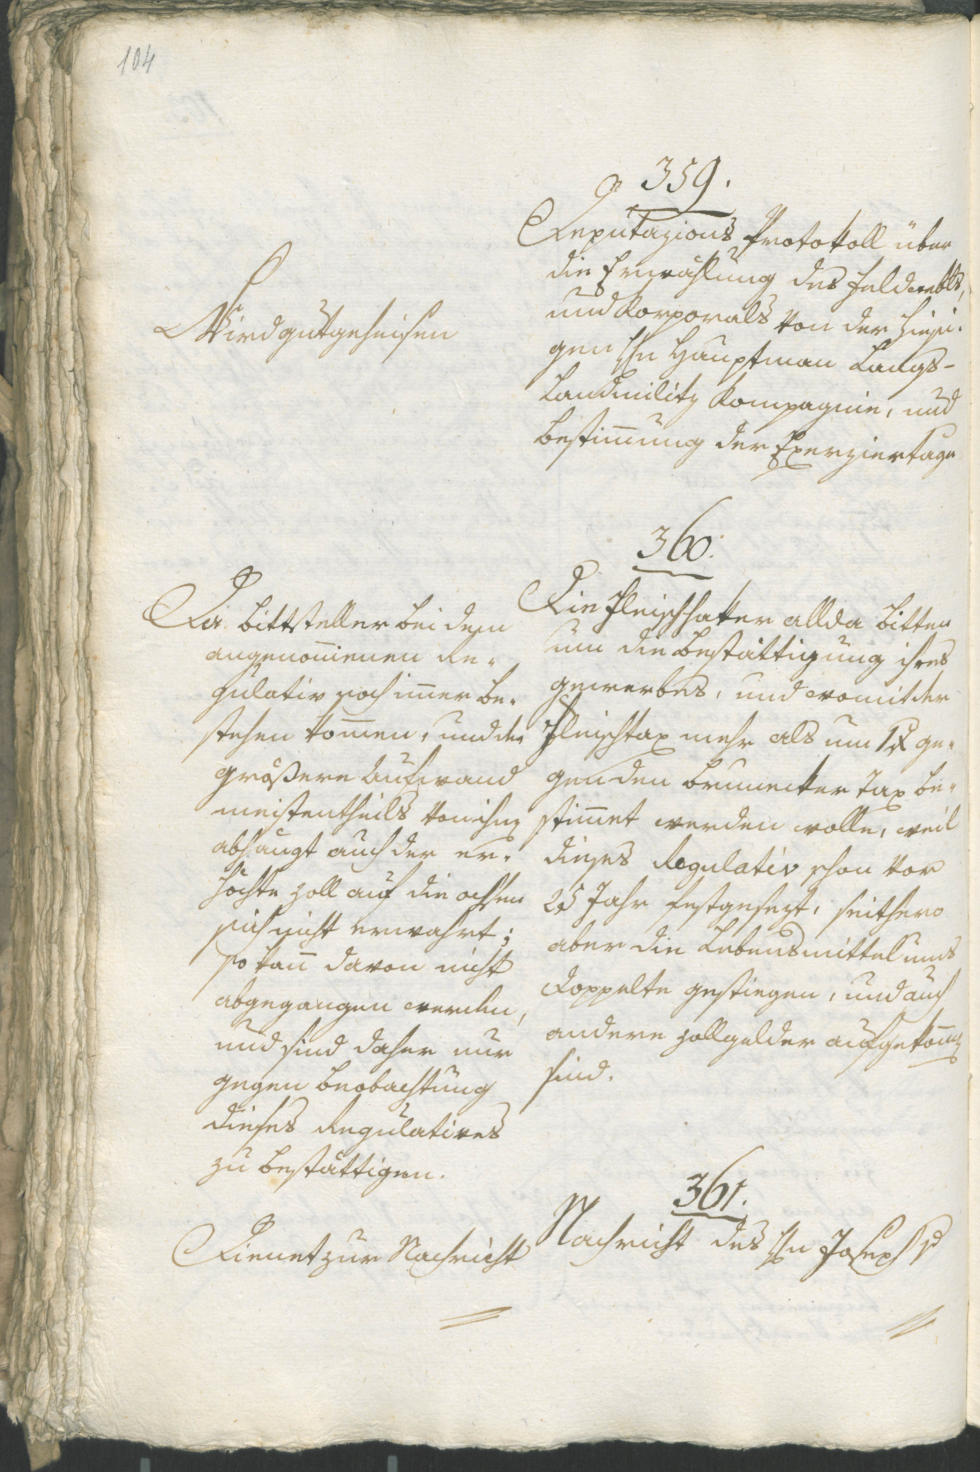 104
359.
Deputazions Protokoll über
die Erwählung des Feldwebls,
und Korporals von der hiesi-
gen Hn Hauptman Langs-
Landmilitz Kompagnie, und
Bestim̅ung der Exerziertage
Wird gutgeheisen
360.
Die Fleischhaker allda bitten
um die Bestättigung ihres
gewerbes, und womit der
Fleischtax mehr als um 1 x ge-
gen den Brunecker Tax be-
stim̅et werden wolle, weil
dieses Regulativ schon vor
25 Jahr festgesezt, seithero
aber die Lebensmittel ums
doppelte gestiegen, und auch
andere Zollgelder aufgekom̅en
sind.
Da Bittsteller bei dem
angenom̅enen Re-
gulativ noch im̅er be-
stehen kön̅en, und der
größere Aufwand
meistentheils von ihnen
abhangt auch der er-
höchte Zoll auf die ochsen
sich nicht erwahrt;
so kan̅ davon nicht
abgegangen werden,
und sind daher nur
gegen Beobachtung
dieses Regulatives
zu bestättigen.
361.
Nachricht des Hn Joseph
Dienet zur Nachricht